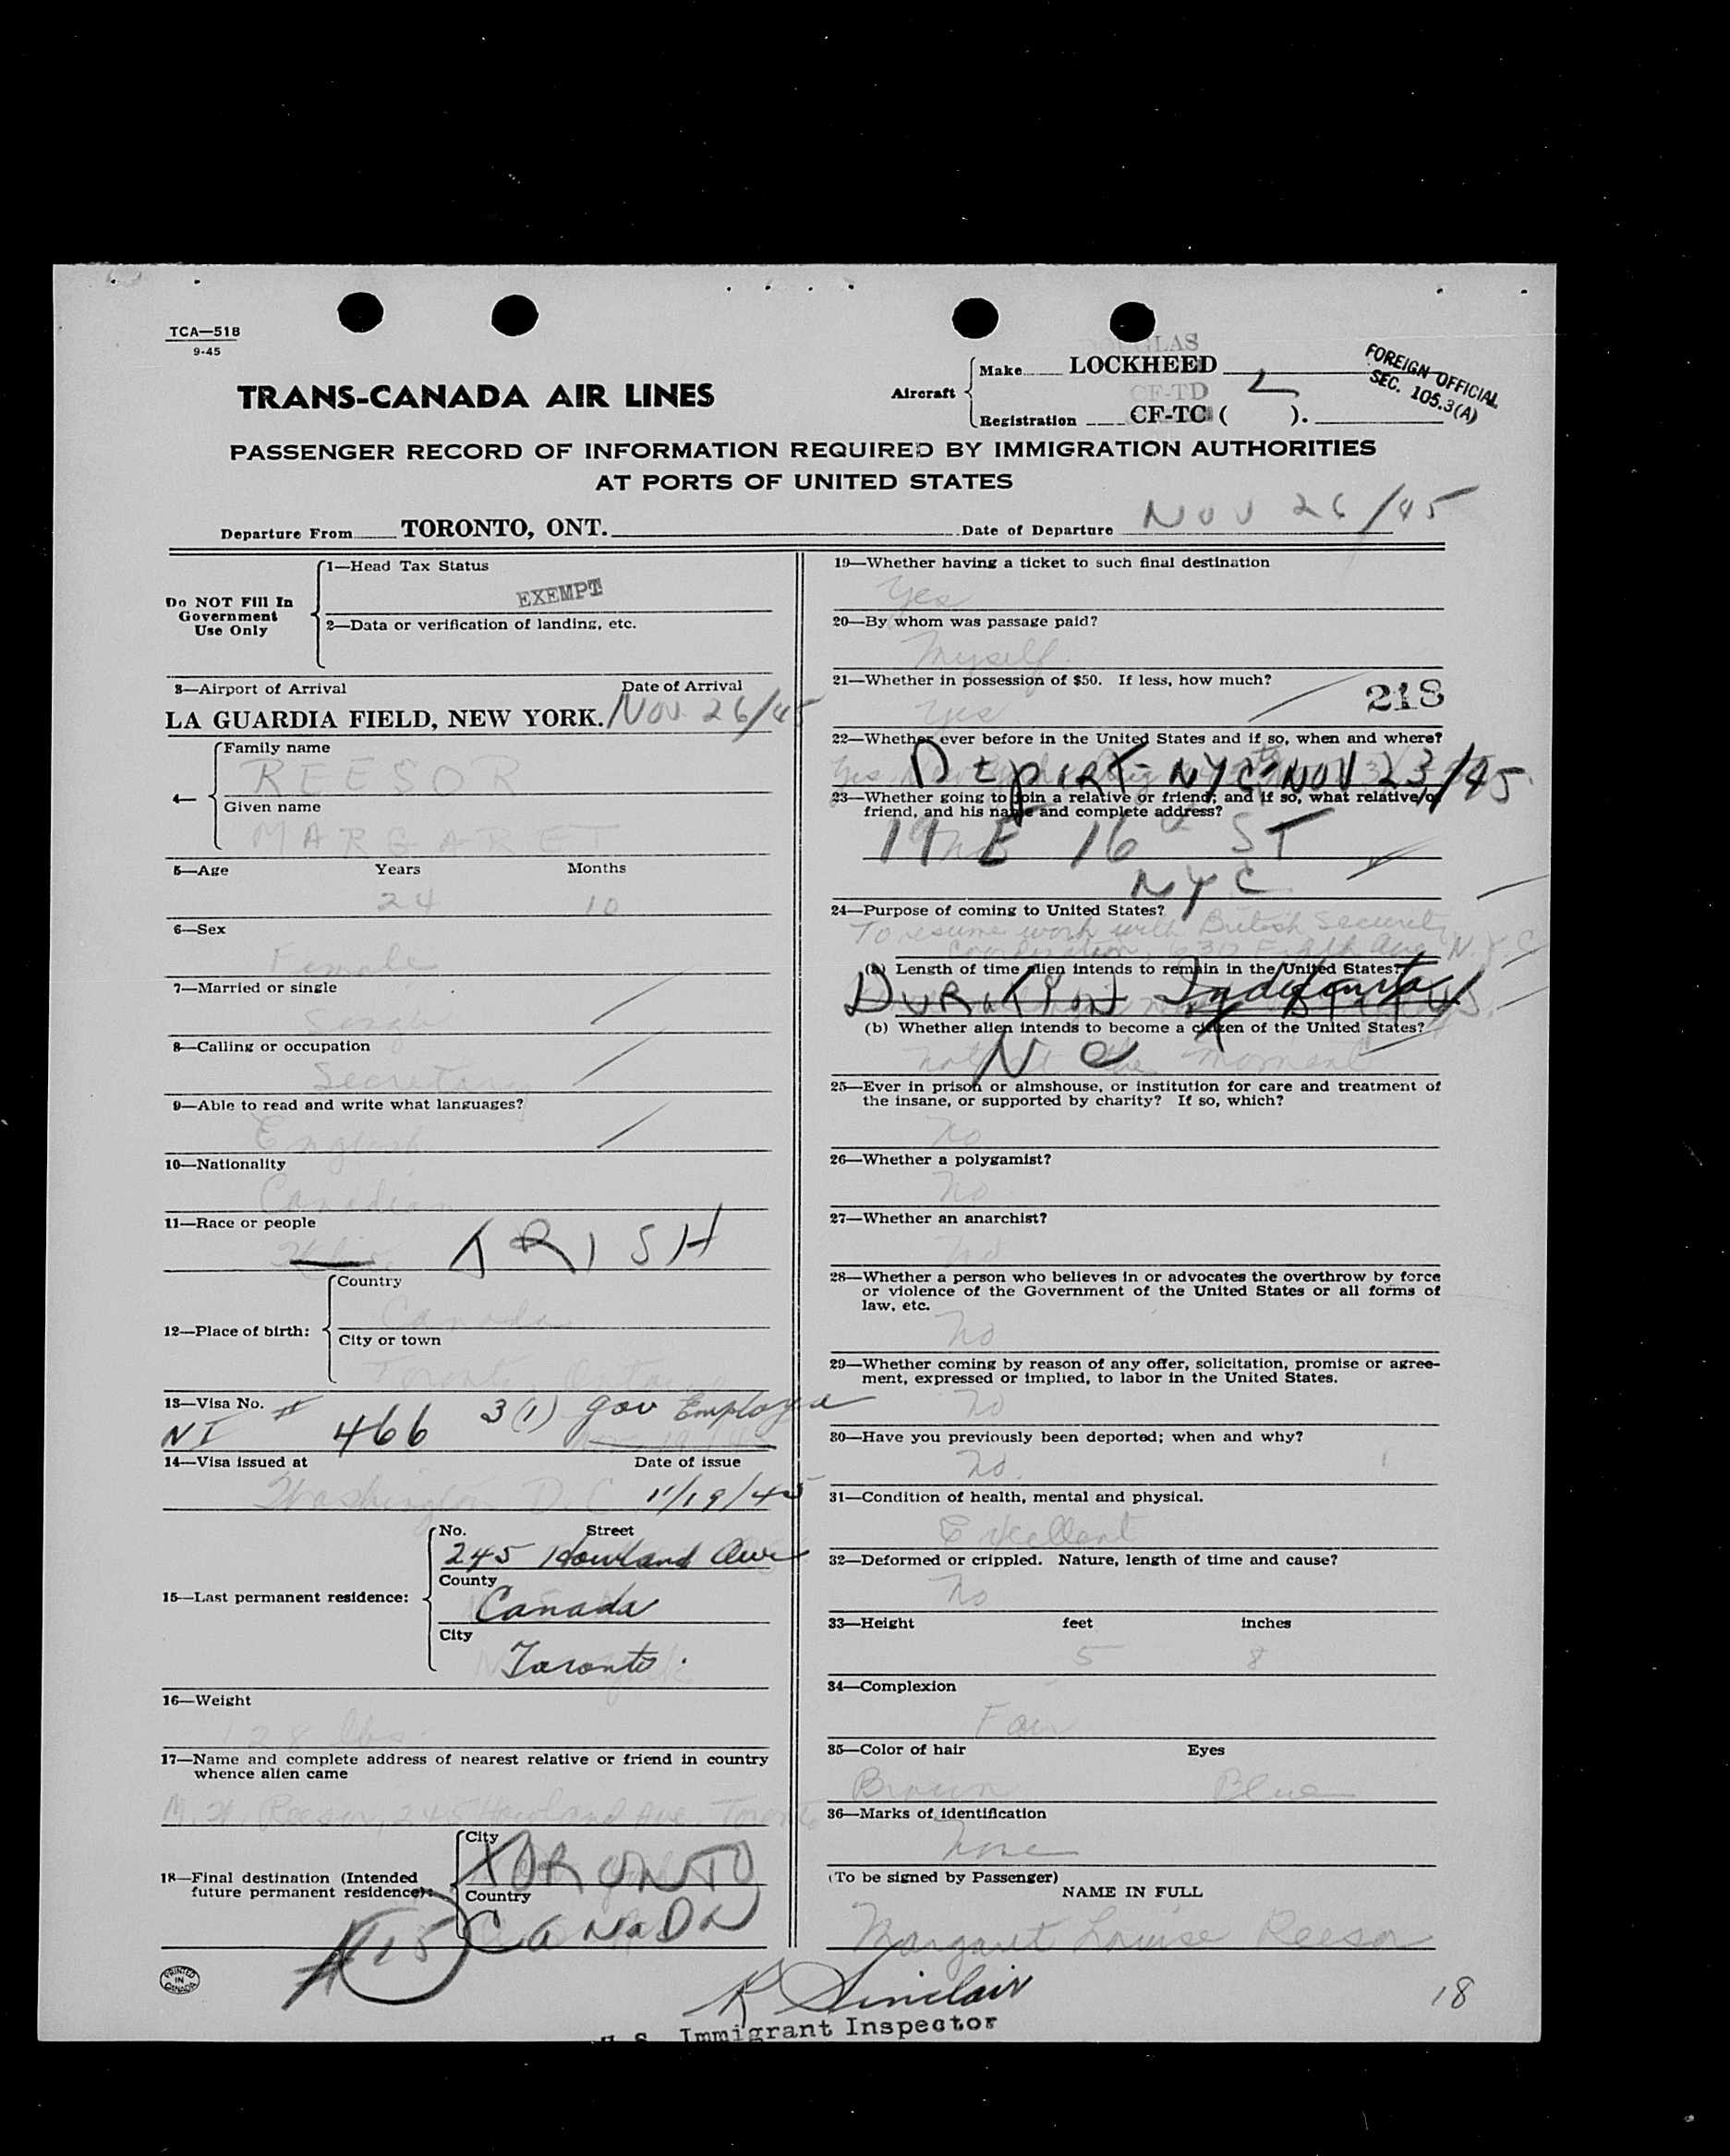 TCA—518
9-45
TRANS-CANADA AIR LINES
Aircraft
Make
DOUGLAS
LOCKHEED
CF-TD
Registration CF-TC ( L ).
FOREIGN OFFICIAL
SEC. 105.3(A)
PASSENGER RECORD OF INFORMATION REQUIRED BY IMMIGRATION AUTHORITIES
AT PORTS OF UNITED STATES
Departure From TORONTO, ONT. Date of Departure NOV 26/45
Do NOT Fill In
Government
Use Only
1—Head Tax Status
EXEMPT
2—Data or verification of landing, etc.
3—Airport of Arrival Date of Arrival
LA GUARDIA FIELD, NEW YORK. NOV. 26/45
4—
Family name
REESOR
Given name
MARGARET
5—Age Years Months
24 10
6—Sex
Female
7—Married or single
Single
8—Calling or occupation
Secretary
9—Able to read and write what languages?
English
10—Nationality
Canadian
11—Race or people
IRISH
12—Place of birth:
Country
Canada
City or town
Toronto, Ontario
13—Visa No. #
NI 466 3(1) gov Employee
14—Visa issued at Date of issue
Washington D.C. 11/19/45
15—Last permanent residence:
No. Street
245 Howland Ave
County
Canada
City
Toronto.
16—Weight
128 lbs.
17—Name and complete address of nearest relative or friend in country
whence alien came
Reesor, 245 Howland Ave. Toronto
18—Final destination (Intended
future permanent residence):
City
TORONTO
Country
CANADA
#15
PRINTED
IN
CANADA
19—Whether having a ticket to such final destination
Yes
20—By whom was passage paid?
Myself.
21—Whether in possession of $50. If less, how much?
Yes
218
22—Whether ever before in the United States and if so, when and where?
Yes
DEPART- NYC- NOV 23/45
23—Whether going to join a relative or friend; and if so, what relative or
friend, and his name and complete address?
No
19 E 16 ST
NYC
24—Purpose of coming to United States?
To resume work with British Security
Coordination, 630 Fifth Ave. N.Y.C
(a) Length of time alien intends to remain in the United States?
DURATION STATUS
Indefinite
(b) Whether alien intends to become a citizen of the United States?
not at the moment
No
25—Ever in prison or almshouse, or institution for care and treatment of
the insane, or supported by charity? If so, which?
No
26—Whether a polygamist?
No
27—Whether an anarchist?
No
28—Whether a person who believes in or advocates the overthrow by force
or violence of the Government of the United States or all forms of
law, etc.
No
29—Whether coming by reason of any offer, solicitation, promise or agree-
ment, expressed or implied, to labor in the United States.
No
30—Have you previously been deported; when and why?
No.
31—Condition of health, mental and physical.
Excellent
32—Deformed or crippled. Nature, length of time and cause?
No
33—Height feet inches
5 8
34—Complexion
Fair
35—Color of hair Eyes
Brown Blue
36—Marks of identification
None
(To be signed by Passenger)
NAME IN FULL
Margaret Louise Reesor
K Sinclair
U. S. Immigrant Inspector
18